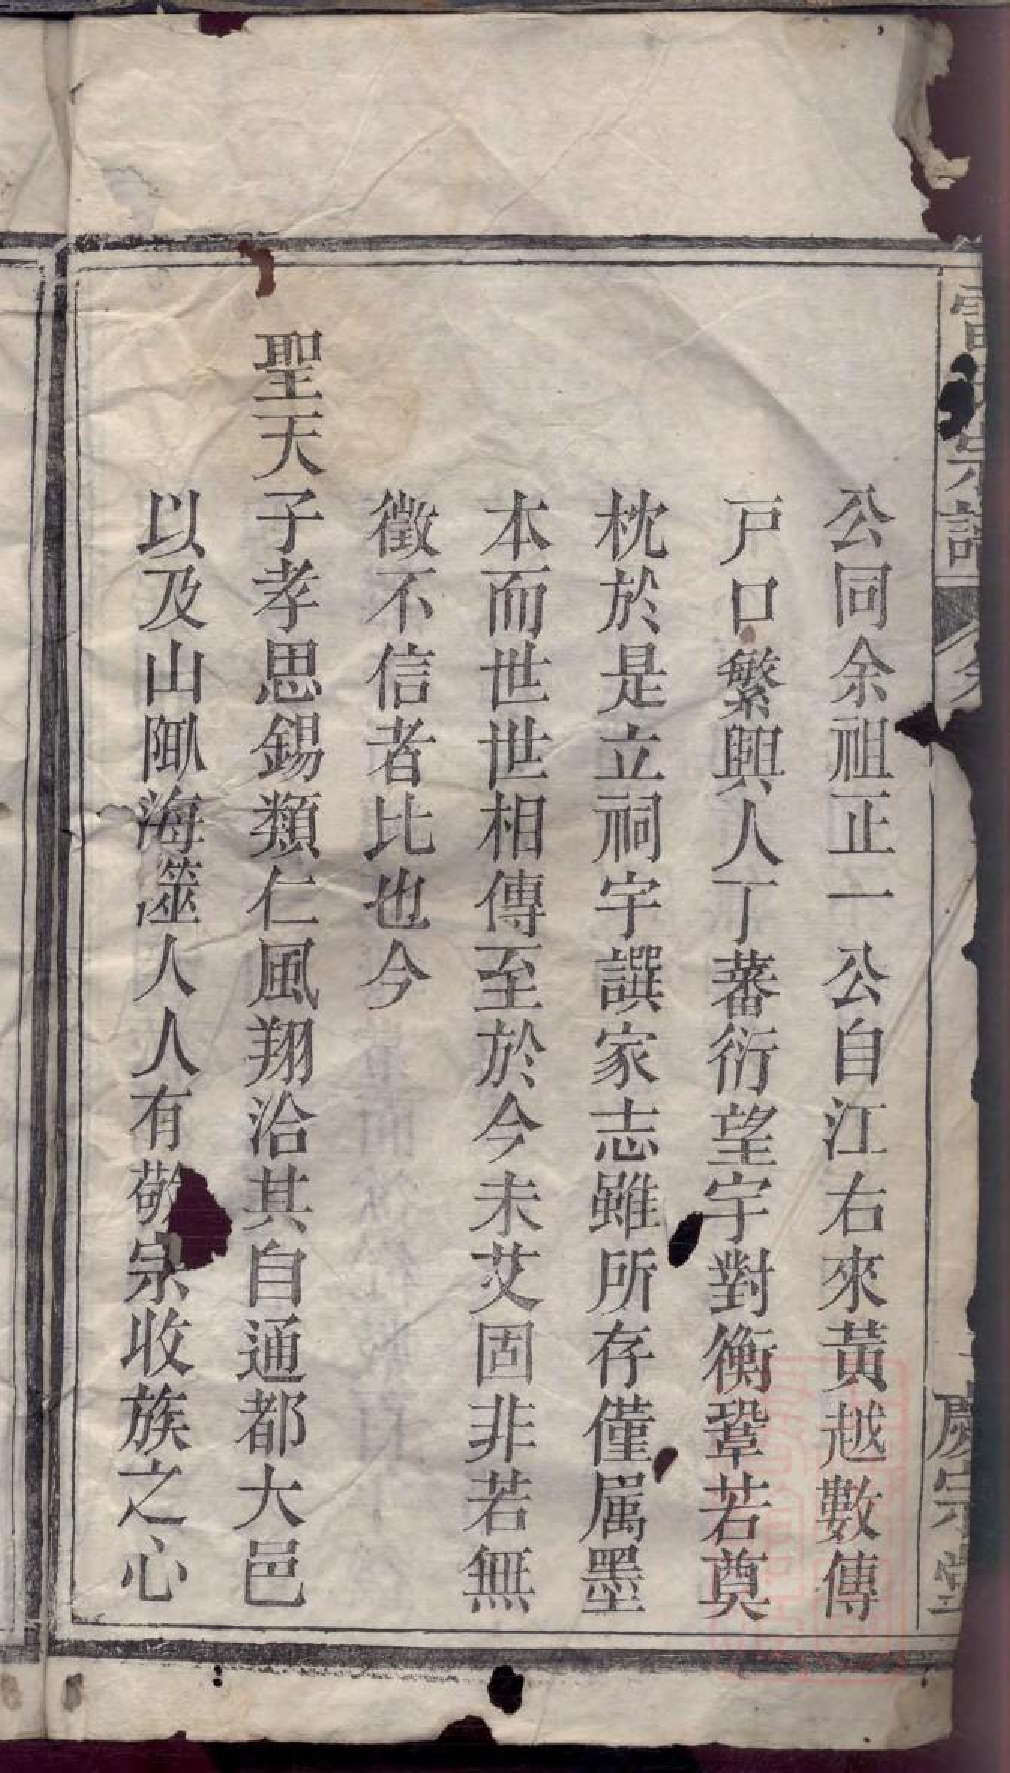 公同余祖正一公自江右來黃越數傳
戸口繁興人丁蕃衍望宇對衡鞏若奠
枕於是立祠宇譔家志雖所存僅属墨
本而世世相傳至於今未艾固非若無
徵不信者比也今
聖天子孝思錫類仁風翔洽其自通都大邑
以及山陬海澨人人有敬宗收族之心
宗譜
慶宗堂